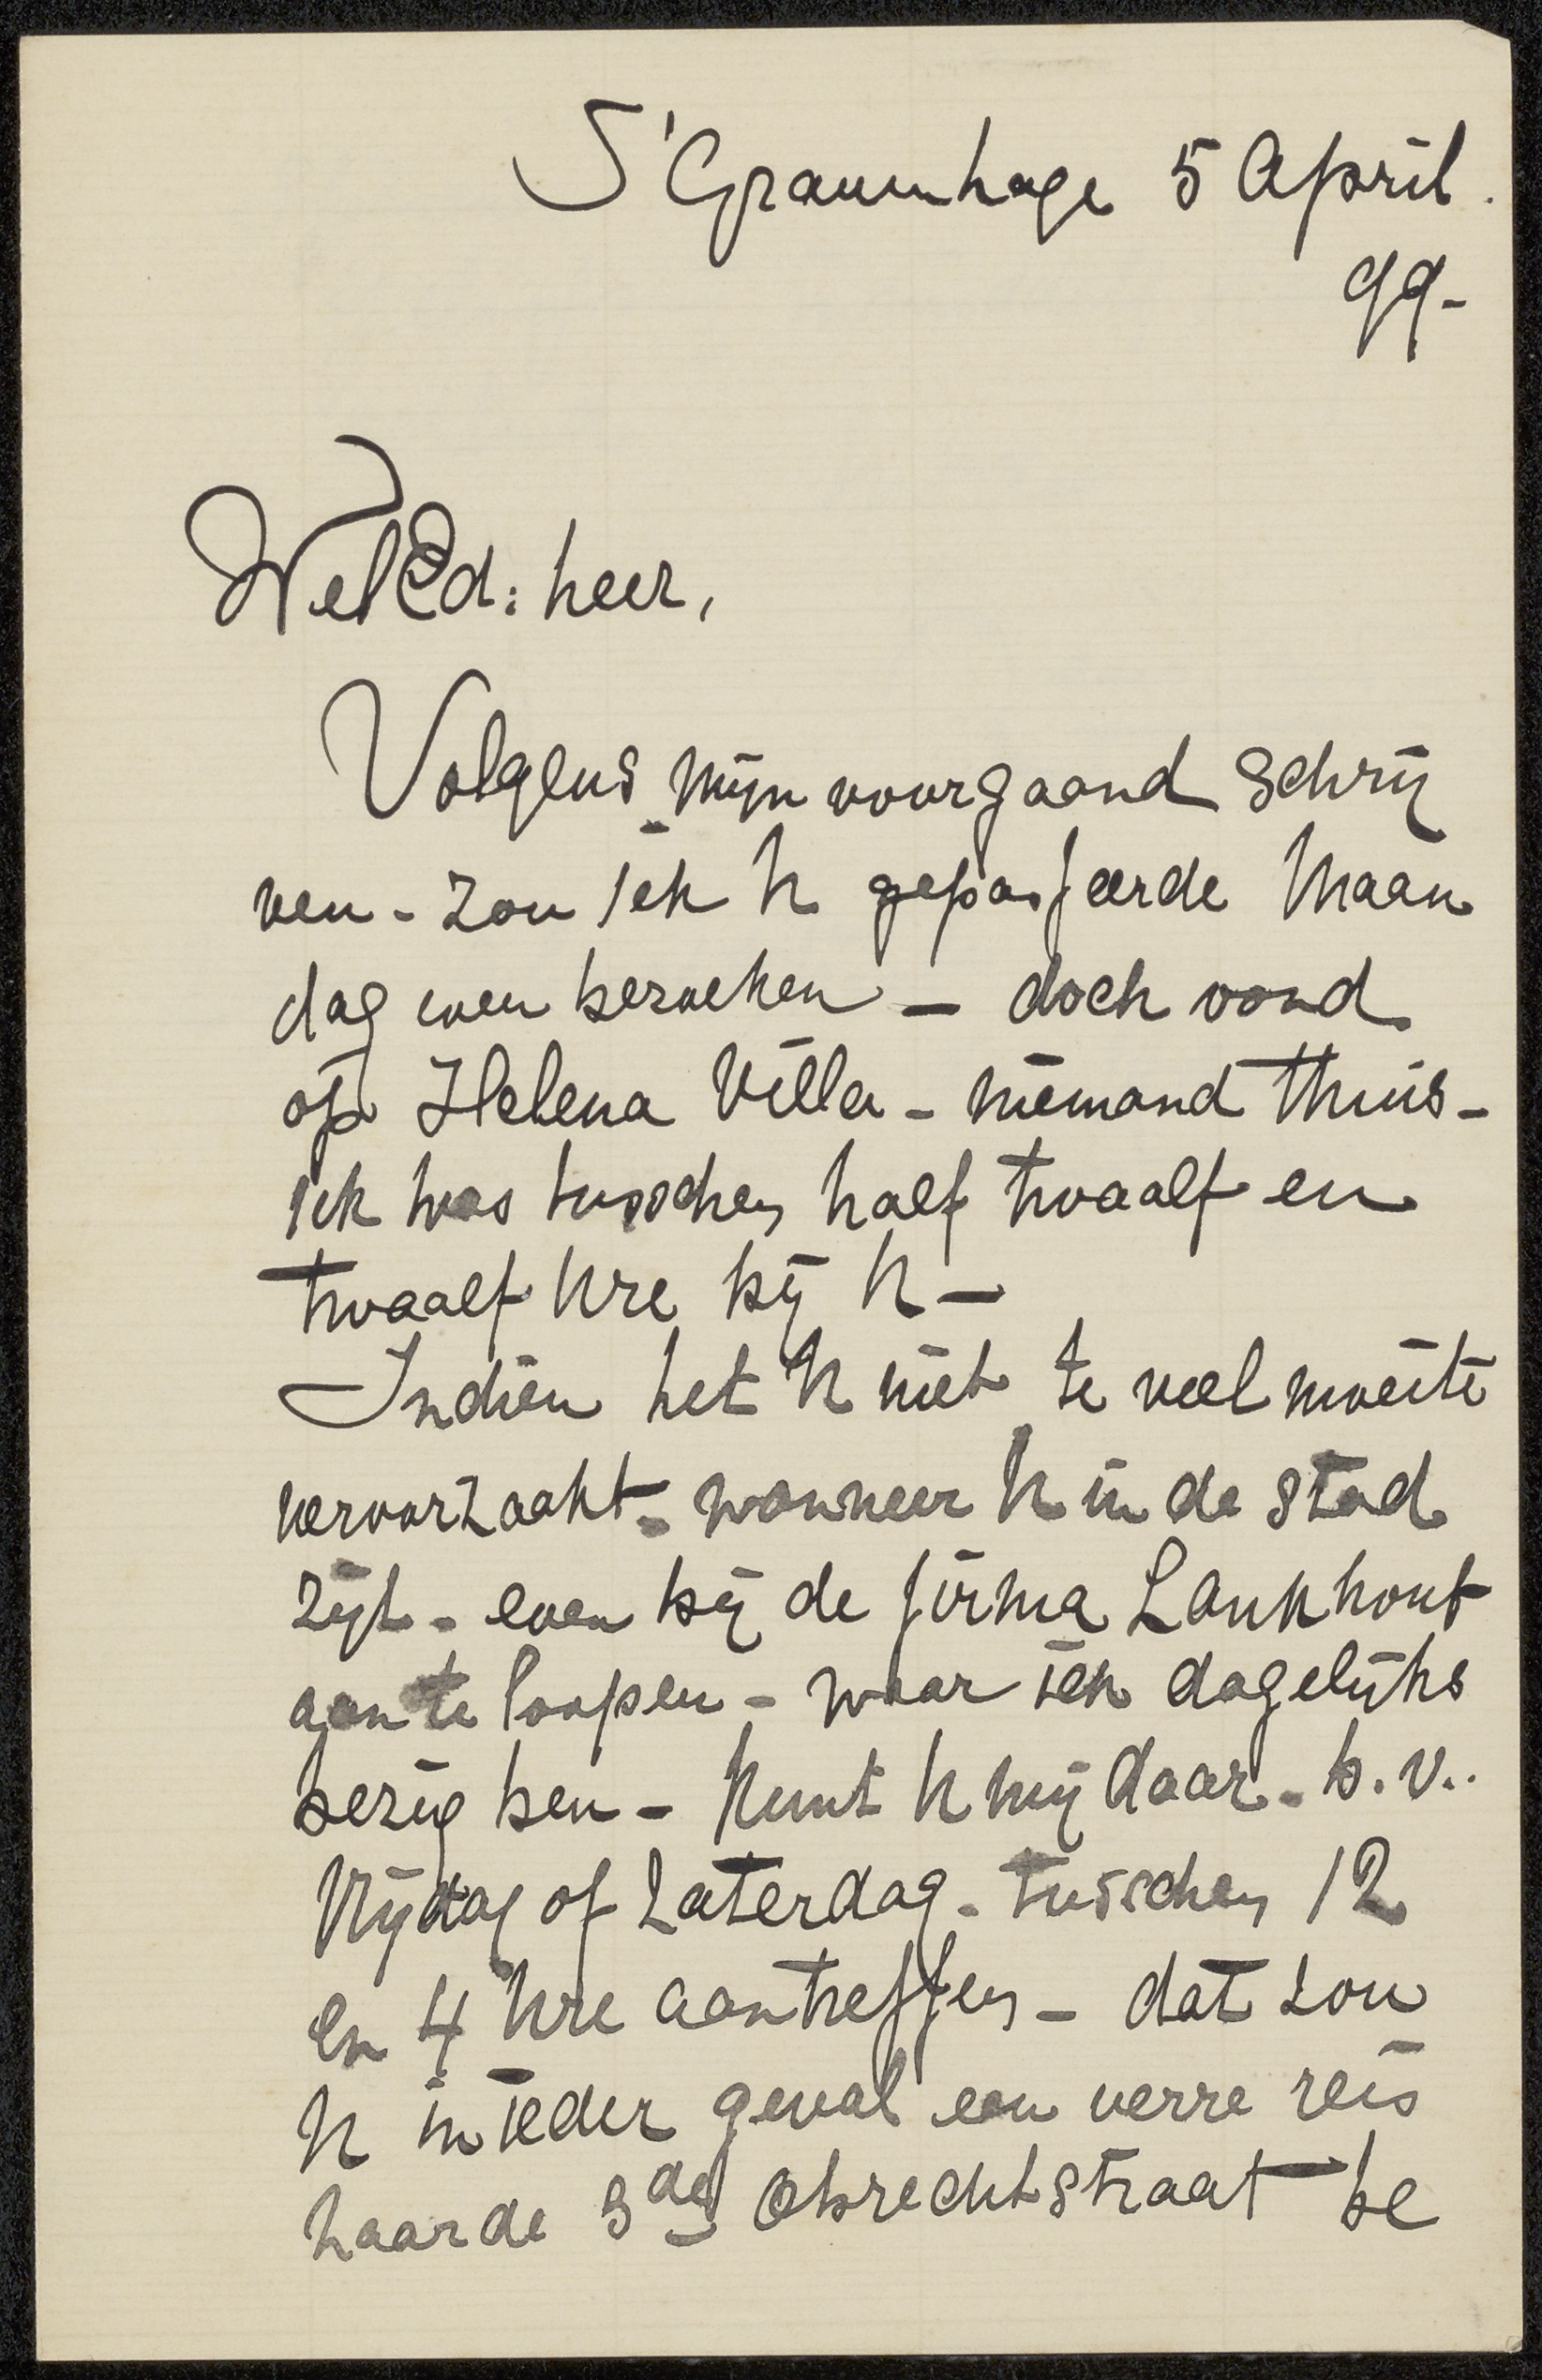 S'Gravenhage 5 April.
99-
WelEd: heer,
Volgens mijn voorgaand schrij
ven - zou ick U gepasseerde Maan
dag even bezoeken - doch vond
op Helena Villa - niemand thuis -
ick was tusschen half twaalf en
twaalf Ure bij U -
Indien het U niet te veel moeite
veroorzaakt - wanneer U in de stad
zijt - even bij de firma Lankhout
aan te loopen - waar ick dagelijks
bezig ben - kunt U mij daar - b.v..
Vrijdag of Zaterdag - tusschen 12
en 4 Ure aantreffen - dat zou
U in ieder geval een verre reis
naar de 3de Obrechtstraat be